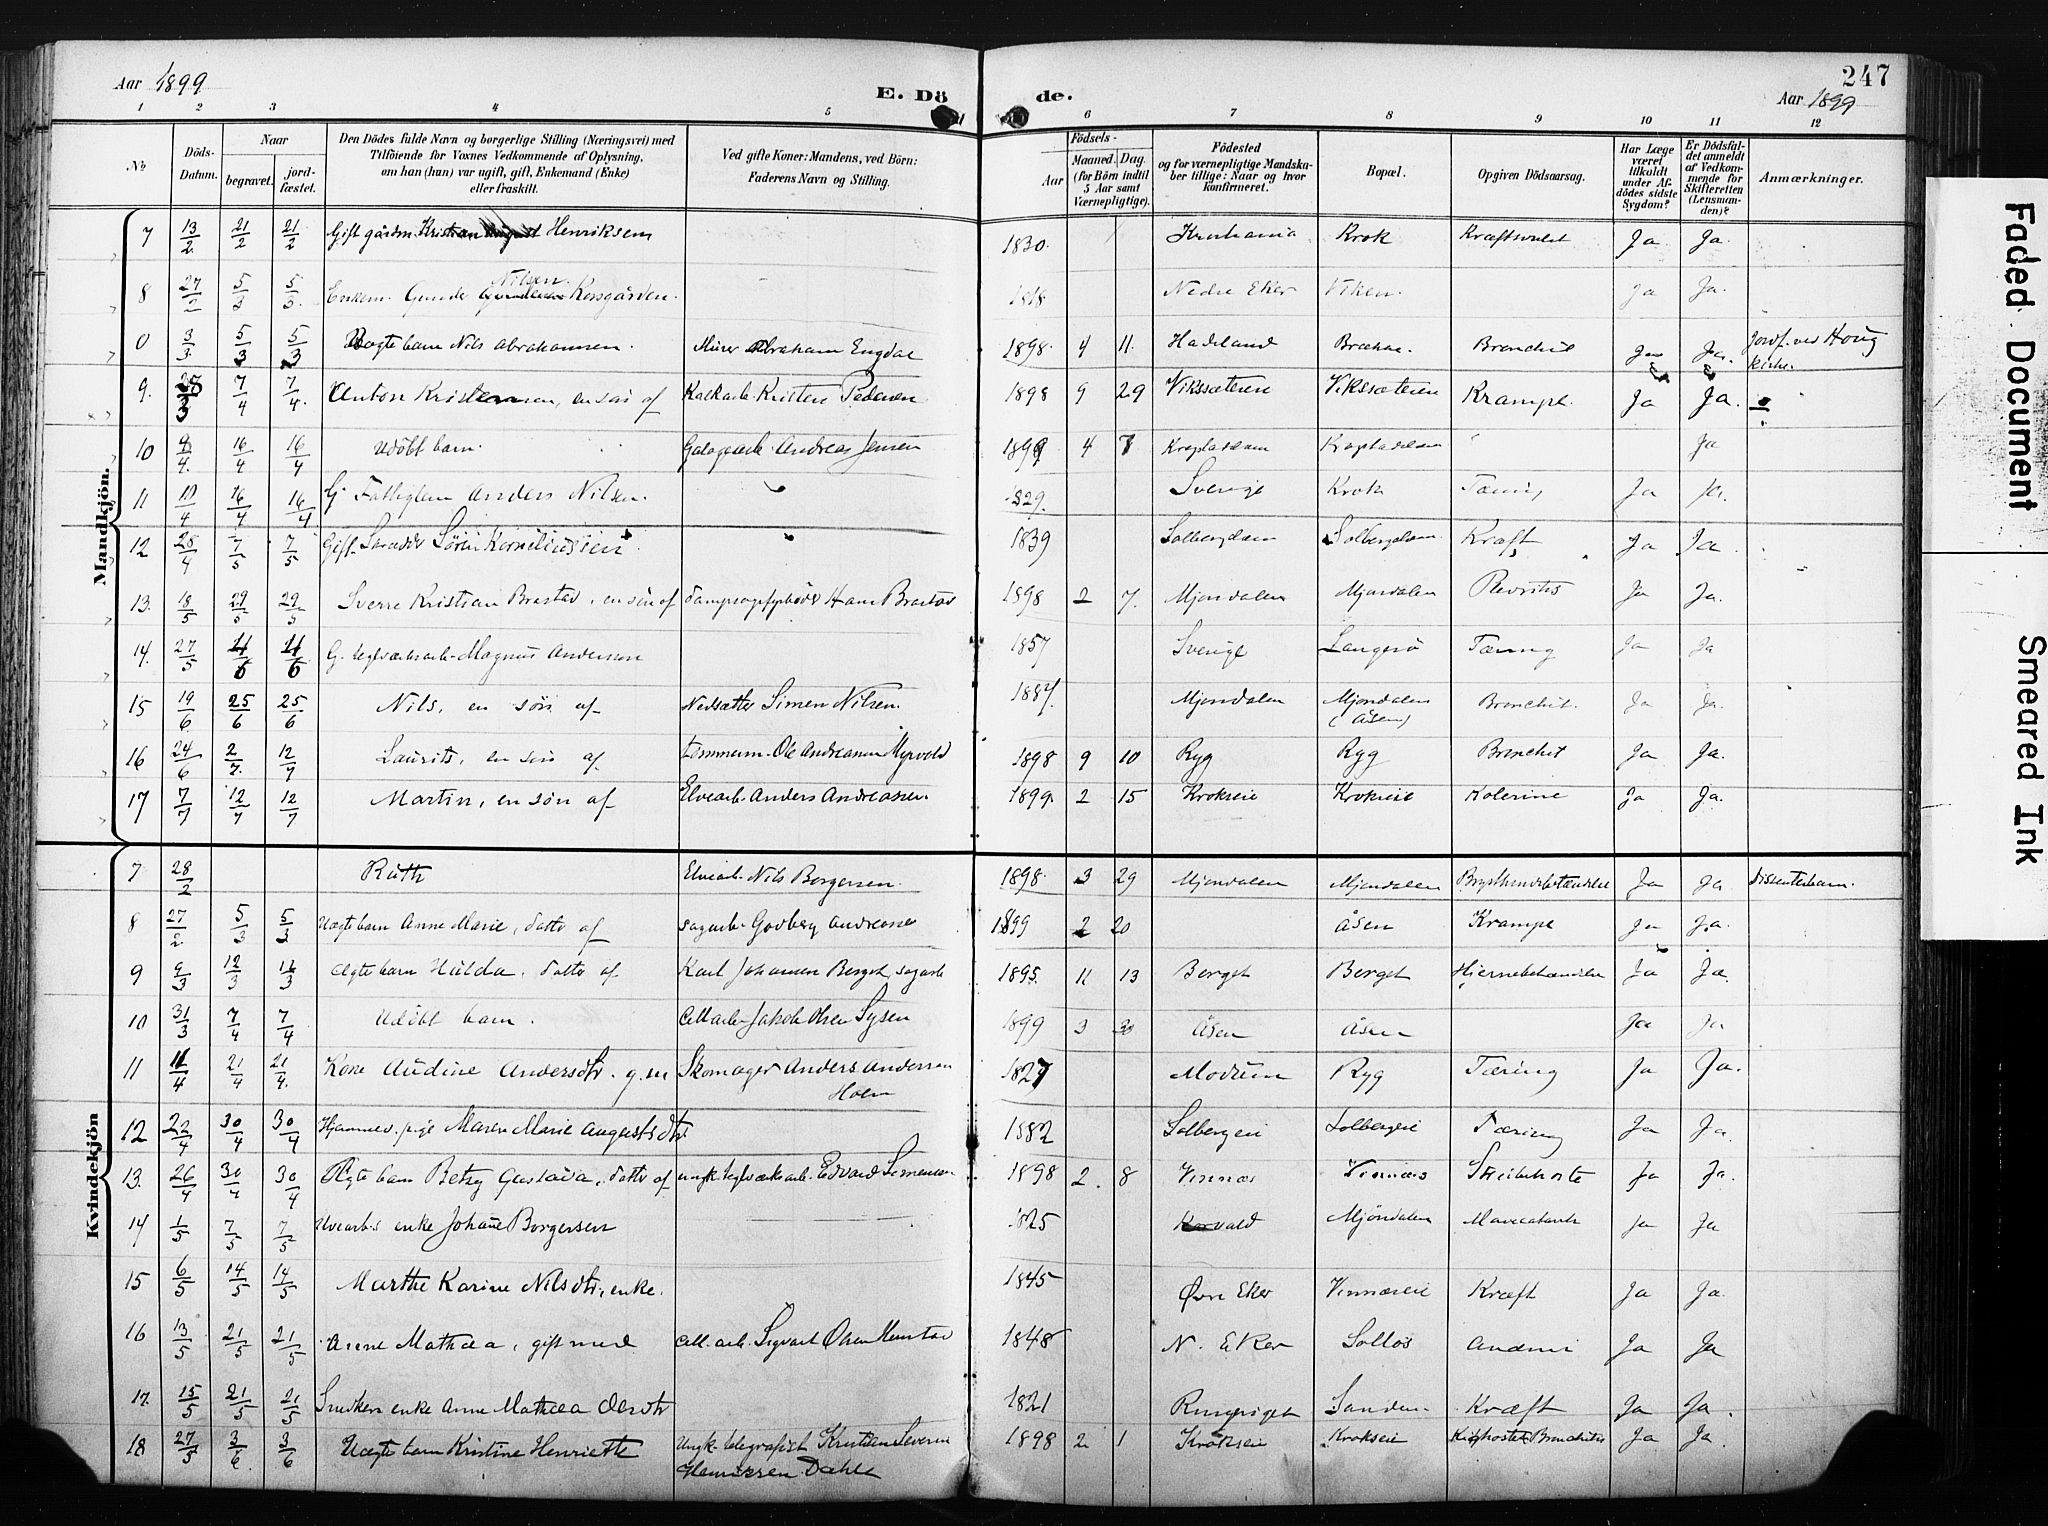 Aar 1899
E. Dö
de.
247
Aar 1899
1 2 3 4 5 6 7 8 9 10 11 12
No
Döds-Datum.
Naar
begravet.
jordfæstet.
Den Dödes fulde Navn og borgerlige Stilling (Næringsvei) med
Tilföiende for Voxnes Vedkommende af Oplysning,
om han (hun) var ugift, gift, Enkemand (Enke)
eller fraskilt.
Ved gifte Koner: Mandens, ved Börn:
Faderens Navn og Stilling.
Födsels-
Aar
Maaned. Dag.
(for Börn indtil
5 Aar samt
Værnepligtige).
Födested
og for værnepligtige Mandska-
ber tillige: Naar og hvor
konfirmeret.
Bopæl.
Opgiven Dödsaarsag.
Har Læge
været
tilkaldt
under Af-
dödes sidste
Sygdom?
Er Dödsfal-
det anmeldt
af Vedkom-
mende for
Skifteretten
(Lensman-
den)?
Anmærkninger.
Mandkjön.
7 13/2 21/2 21/2 Gift gårdm. Kristian August Henriksen 1830. Kristiania Krok Kræftsvulst Ja Ja.
8 27/2 5/3 5/3. Enkem. Gunder Nilsen Korsgården. 1818 Nedre Eker Viken Ja Ja.
0 3/3 5/3 5/3 Uægte barn Nils Abrahamsen. Murer Abraham Engdal 1898. 4 11. Hadeland Bronchit Ja Ja. Jordf. ved Houg kirke.
9. 25/3 7/4 7/4. Anton Kristensen, en sön af Kalkarb. Kristen Pedersen 1898 9 29 Vikssæteren Vikssæteren Krampe. Ja Ja.
10 8/4. 16/4 16/4 Udöbt barn. Andreas Jensen 1899 4 7 Ja
11 10/4 16/4 16/4 G. Fattiglem Anders Nilsen. 1829. Sverige Krok Tæring Ja Ja.
12 28/4 7/5 7/5 Gift. Sören Korneliussen 1839 Solbergdam Solbergdam Kræft Ja Ja.
13. 18/5 29/5 29/5 Sverre Kristian Brastad, en sön af Hans Brastad 1898 2 7. Mjøndalen Mjøndalen Plevritis Ja Ja.
14. 27/5 4/6 4/6 G. teglværksarb. Magnus Anderson 1857 Sverige Langesö Tæring Ja Ja
15 19/6 25/6 25/6 Nils, en sön af Simen Nilsen. 1887. Mjøndalen Mjøndalen (Åsen) Bronchit. Ja Ja.
16 24/6 2/7. 12/7 Laurits, en sön af Tömmerm. Ole Andreasen Myrvold 1898 9 10 Ryg Ryg Bronchit Ja Ja.
17 7/7 12/7 12/7 Martin, en sön af Elvearb. Anders Andreassen. 1899. 2 15 Krokseie Krokseie Kolerine Ja Ja.
Kvindekjön
7 28/2 Ruth Elvearb. Nils Borgersen. 1898. 3 29 Mjøndalen Mjøndalen Brysthindebetændelse Ja Ja. Dissenterbarn.
8 27/2 5/3 5/3 Uægte barn Anne Marie, datter af sagarb. Godberg Andreasen 1899 2 20 Åsen Krampe Ja Ja.
9 9/3 12/3 12/3 Ægte barn Hulda, datter af Karl Johansen Berget, sagarb 1895. 11 13 Berget Berget Hjernebetændelse Ja Ja.
10 31/3 7/4 7/4 Udöbt barn. Cellarb. Jakob Olsen Sysen 1899 3 30 Åsen Åsen Ja Ja
11 11/4 21/4 21/4. Kone Audine Andersdtr. g.m. Skomager Anders Andersen Holm 1827 Modum Ryg Tæring Ja Ja.
12 22/4 30/4 30/4 Hjemmev. pige Maren Marie Augustsdtr. 1882 Solbergeie Solbergeie Tæring Ja Ja.
13. 26/4 30/4 30/4 Ægte barn Betsy Gustava, datter af ungk. teglværksarb. Edvard Simensen 1898 2. 8 Vinnæs Vinnæs Strubehoste Ja Ja.
14 1/5 7/5 7/5 enke Johanne Borgersen 1825 Mjöndalen Mavecatarrh Ja Ja
15 6/5 14/5 14/5 Marthe Karine Nilsdtr., enke. 1845 Øvre Eker Vinnæseie Kræft Ja Ja.
16 13/5 21/5 21/5 Anne Mathea, gift med Cell.arb. Sigvart Olsen 1848 N. Eker Sollos Ja Ja
17. 15/5 21/5 21/5 Snedkers enke Anne Mathea Olesdtr 1821 Ringeriget Sanden Kræft Ja Ja.
18 27/5 3/6 3/6 Uægte barn Kristine Henriette Ungk. telegrafist Kristian Severin Henriksen Dahle 1898 2. 1 Krokseie Krokseie Kighoste Bronchitis Ja Ja.
Faded Document
Smeared Ink